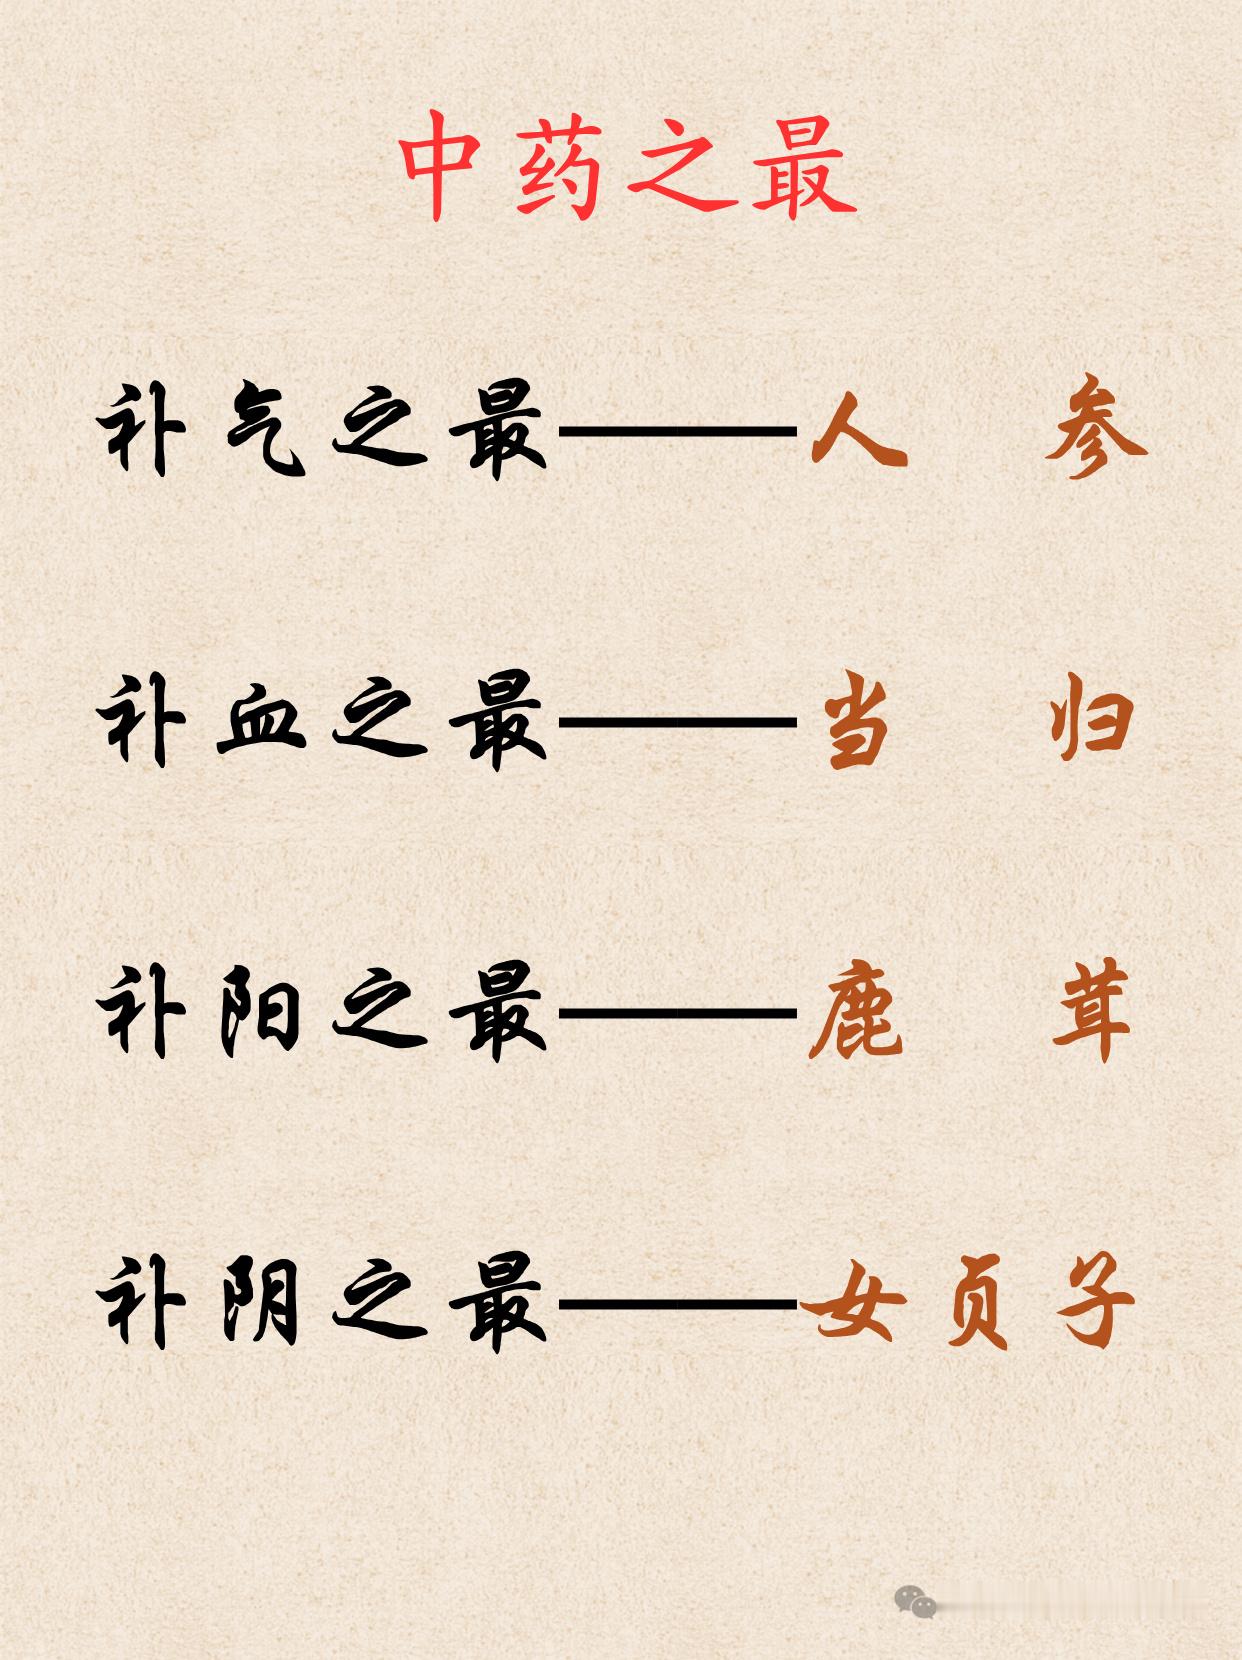 中药之最
补气之最——人 参
补血之最——当 归
补阳之最——鹿 茸
补阴之最——女贞子